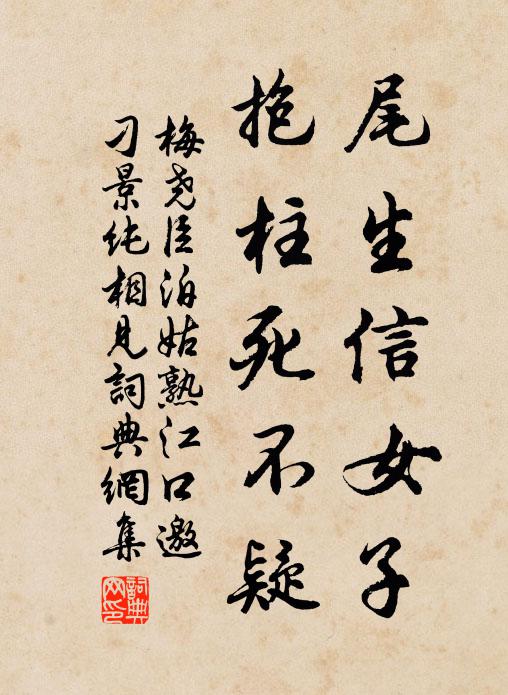 尾生信女子
抱柱死不疑
梅尧臣泊姑熟江口邀
刁景纯相见詞典網集
詞典
网印